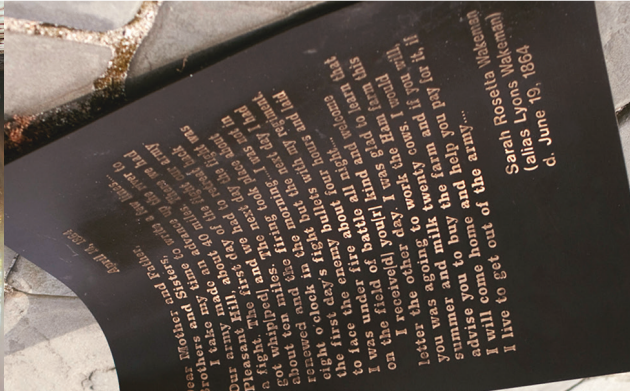 April 14, 1864
ear Mother and Father,
rothers and Sisters,
I take my time to write a few lines....
Our army made an advance up the river to
Pleasant Hill, about 40 miles. There we had
a fight. The first day of the fight our army
got whip[p]ed and we had to retreat back
about ten miles. The next day the fight was
renewed and the firing took place about
eight o'clock in the morning. I was not in
the first day's fight but the next day I had
to face the enemy bullets with my regiment.
I was under fire about four hours and laid
on the field of battle all night....
I receive[d] you[r] kind and welcome
letter the other day. I was glad to learn that
you was agoing to work the Ham farm this
summer and milk twenty cows. I would
advise you to buy the farm and if you will,
I will come home and help you pay for it, if
I live to get out of the army....
Sarah Rosetta Wakeman
(alias Lyons Wakeman)
d. June 19, 1864